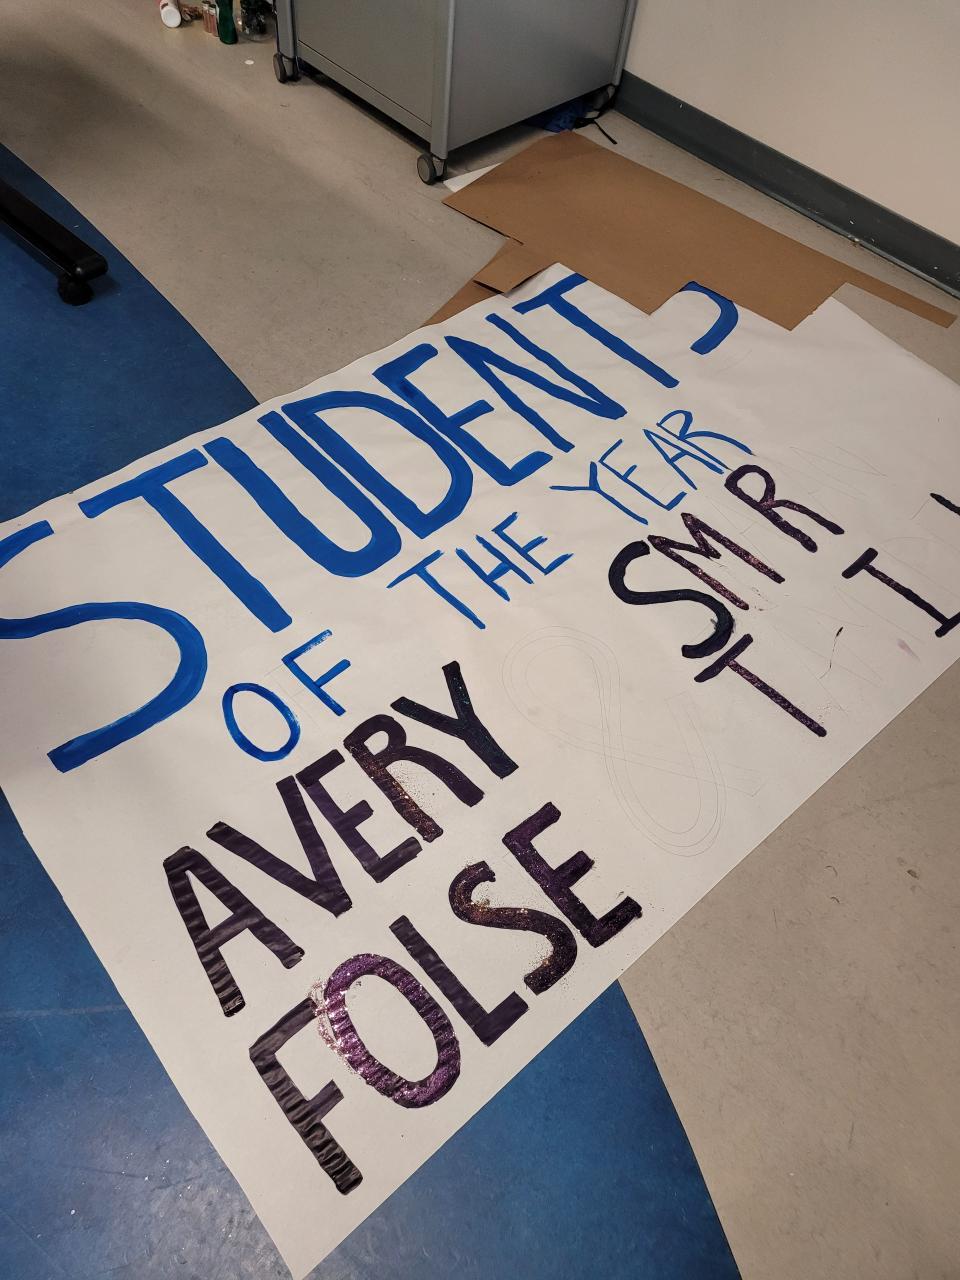 STUDENTS
OF THE YEAR
AVERY
FOLSE
SMR
T I